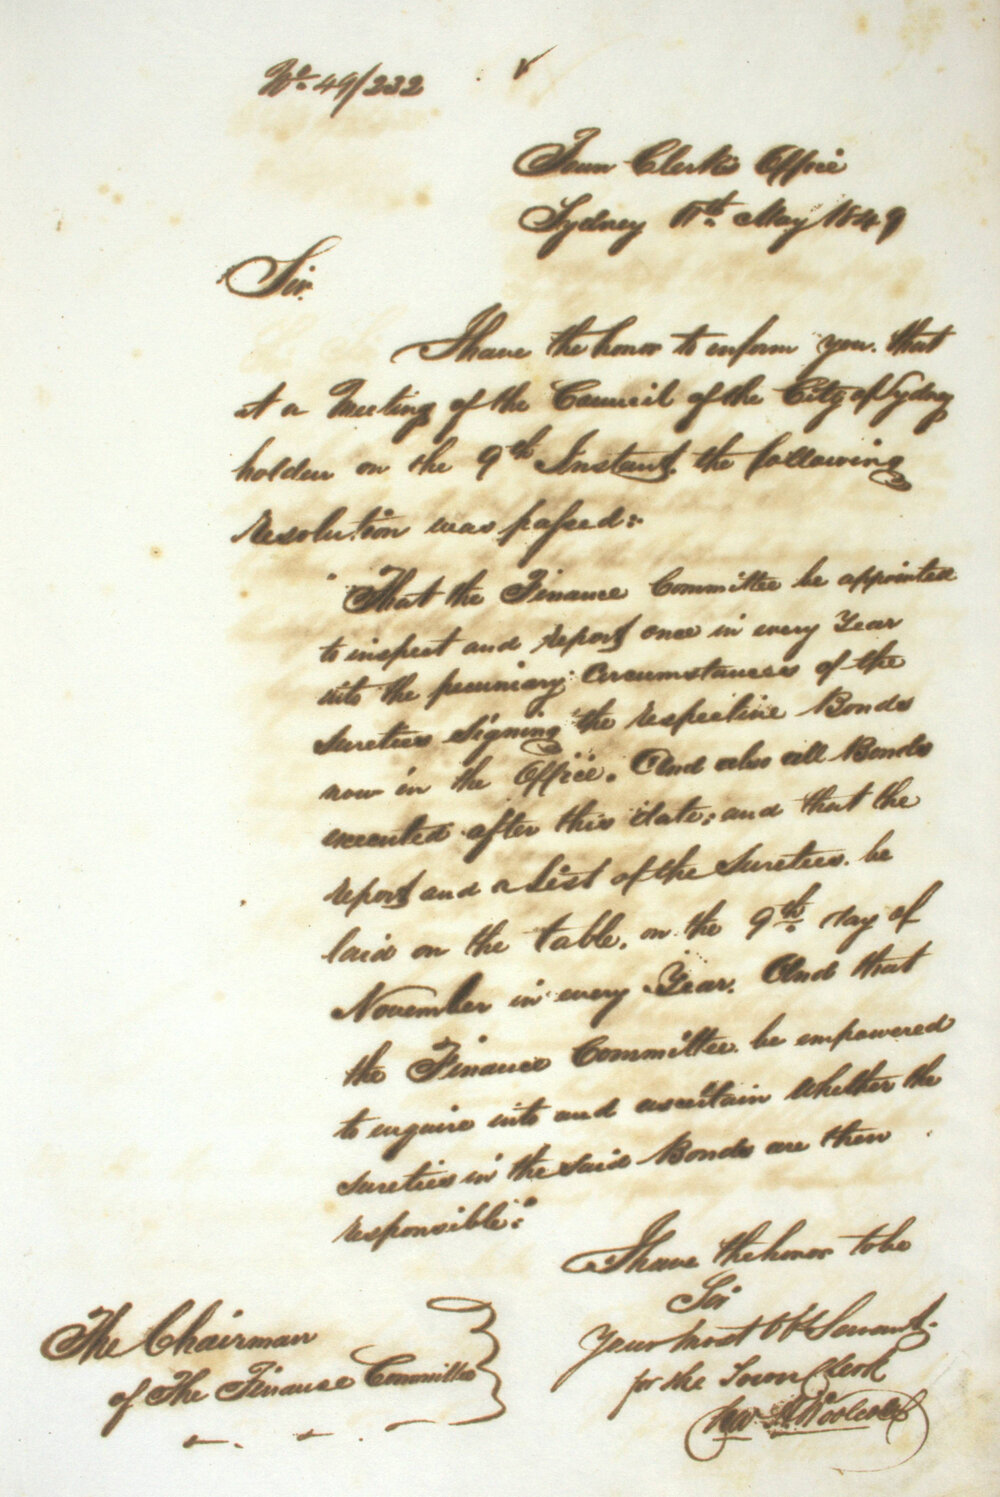 No. 49/232
Town Clerk's Office
Sydney 11th May 1849
Sir.
I have the honor to inform you. that
at a Meeting of the Council of the City of Sydney
holden on the 9th Instant the following
resolution was passed:
"That the Finance Committee be appointed
to inspect and report once in every Year
into the pecuniary circumstances of the
sureties signing the respective Bonds
now in the Office. And also all Bonds
executed after this date; and that the
report and a List of the Sureties. be
laid on the table. on the 9th day of
November in every Year. And that
the Finance Committee. be empowered
to enquire into and ascertain whether the
sureties in the said Bonds are then
responsible."
I have the honor to be
Sir
Your most Obt Servant.
for the Town Clerk
The Chairman
of the Finance Committee